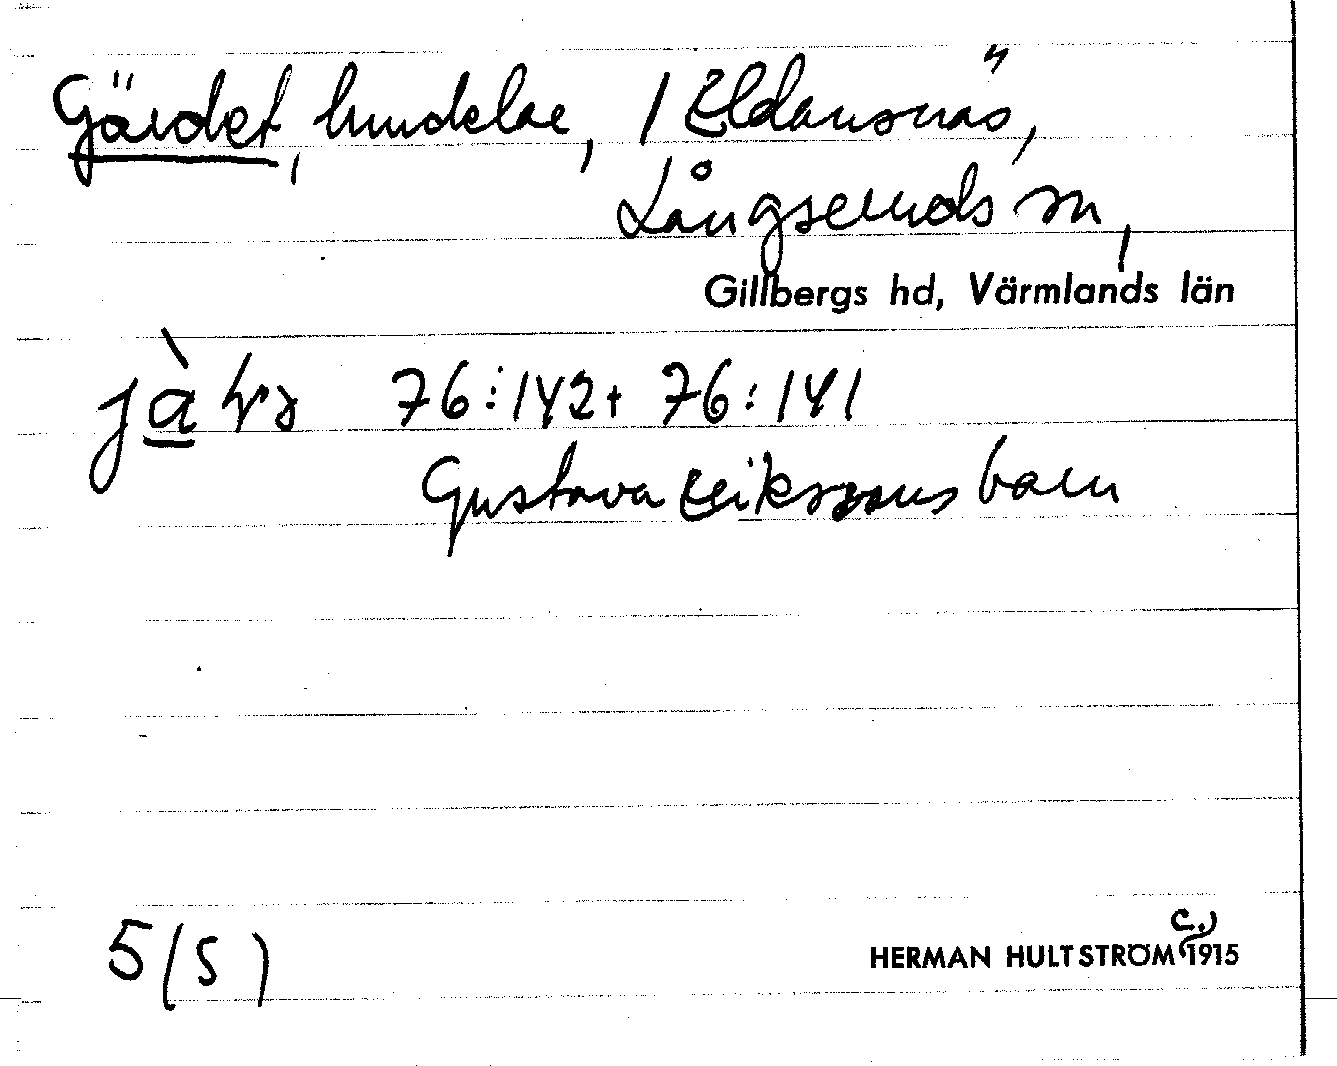 Gärdet, hmdelar, 1 Eldansnäs,
Långseruds sn,
Gillbergs hd, Värmlands län
76:142+ 76:141
Gustava Erikssons barn
5(S)
C.,
HERMAN HULTSTRÖM 1915